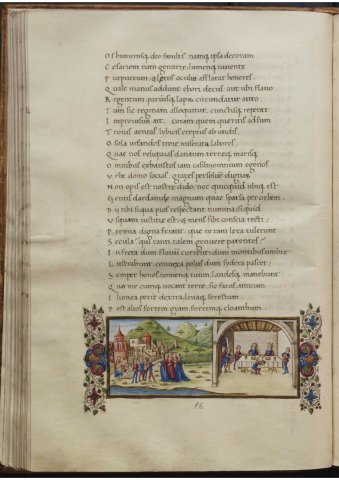 Os humerosq; deo similis. namq; ipsa decoram
Cesariem nato genitrix. lumenq; iuuente
Purpureum. & letos oculis afflarat honores.
Quale manus addunt ebori decus. aut ubi flauo
Argentum pariusq; lapis circundatur auro.
Tum sic reginam alloquitur. cunctisq; repente
Improuisus ait. coram quem queritis adsum
Troius aeneas lybicis ereptus ab undis.
O sola infandos troie miserata labores
Quae nos reliquias danaum terreq; marisq;
Omnibus exhaustos iam casibus omnium egenos
Vrbe domo socias. grates persoluere dignas
Non opis est nostre dido. nec quicquid ubiq; est
Gentis dardanie. magnum quae sparsa per orbem.
Dii tibi siqua pios respectant numina. si quid
Vsquam iustitie est. & mens sibi conscia recti.
Premia digna ferant. que te tam leta tulerunt
Secula? qui tanti talem genuere parentes?
In freta dum fluuii current. dum montibus umbre
Lustrabunt. conuexa polus dum sydera pascet.
Semper honos nomenq; tuum. laudesq; manebunt
Quae me cumq; uocant terre. sic fatus amicum
Ilionea petit dextera. leuaq; serestum.
Post alios fortem gyam. fortemq; cloanthum